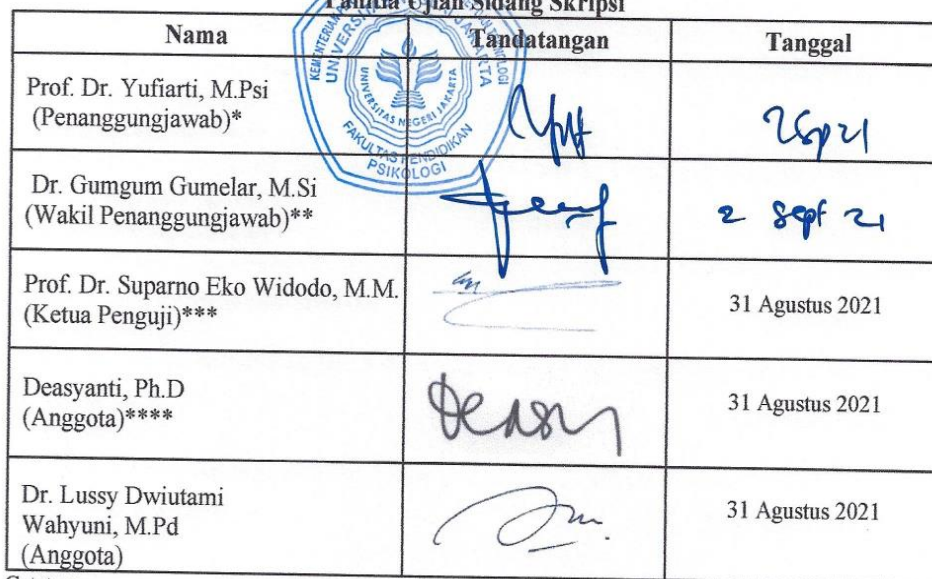 Panitia Ujian Sidang Skripsi
Nama Tandatangan Tanggal
Prof. Dr. Yufiarti, M.Psi
(Penanggungjawab)*
Dr. Gumgum Gumelar, M.Si
(Wakil Penanggungjawab)**
2 Sept 21
Prof. Dr. Suparno Eko Widodo, M.M.
(Ketua Penguji)***
31 Agustus 2021
Deasyanti, Ph.D
(Anggota)****
31 Agustus 2021
Dr. Lussy Dwiutami
Wahyuni, M.Pd
(Anggota)
31 Agustus 2021
UNIVERSITAS NEGERI JAKARTA
FAKULTAS PENDIDIKAN
PSIKOLOGI